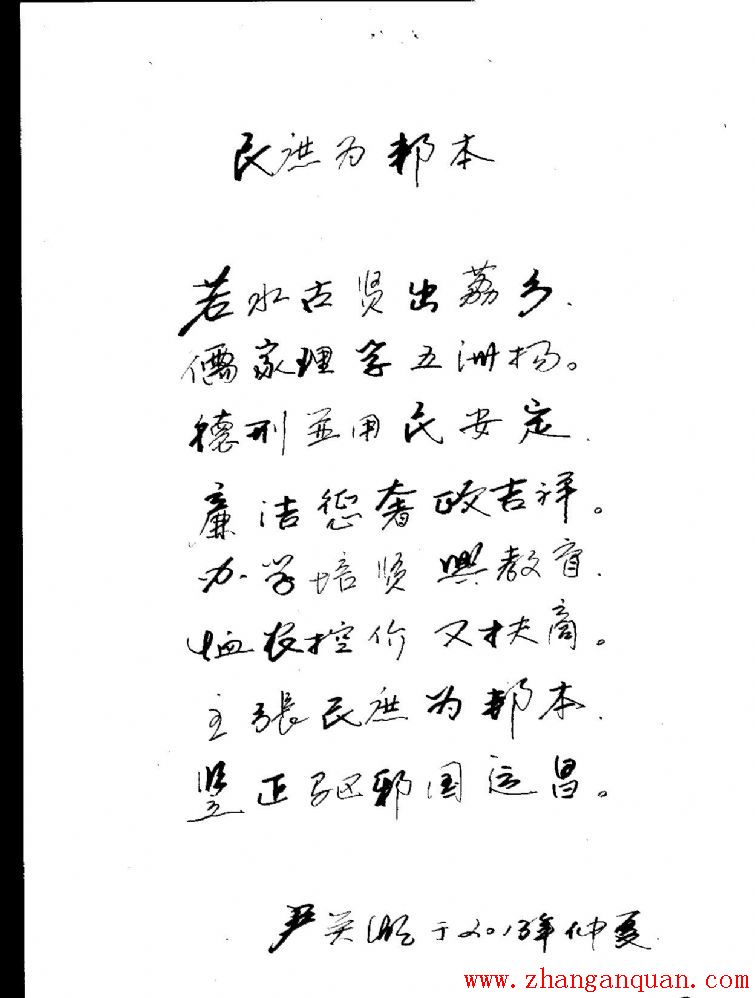 民庶为邦本
若水古贤出荔乡.
儒家理学五洲扬。
德刑並用民安定.
廉洁惩奢政吉祥。
办学培贤興教育.
恤农控价又扶商。
主張民庶为邦本.
竖正驱邪国运昌。
尹英 于2013年仲夏
www.zhanganquan.com